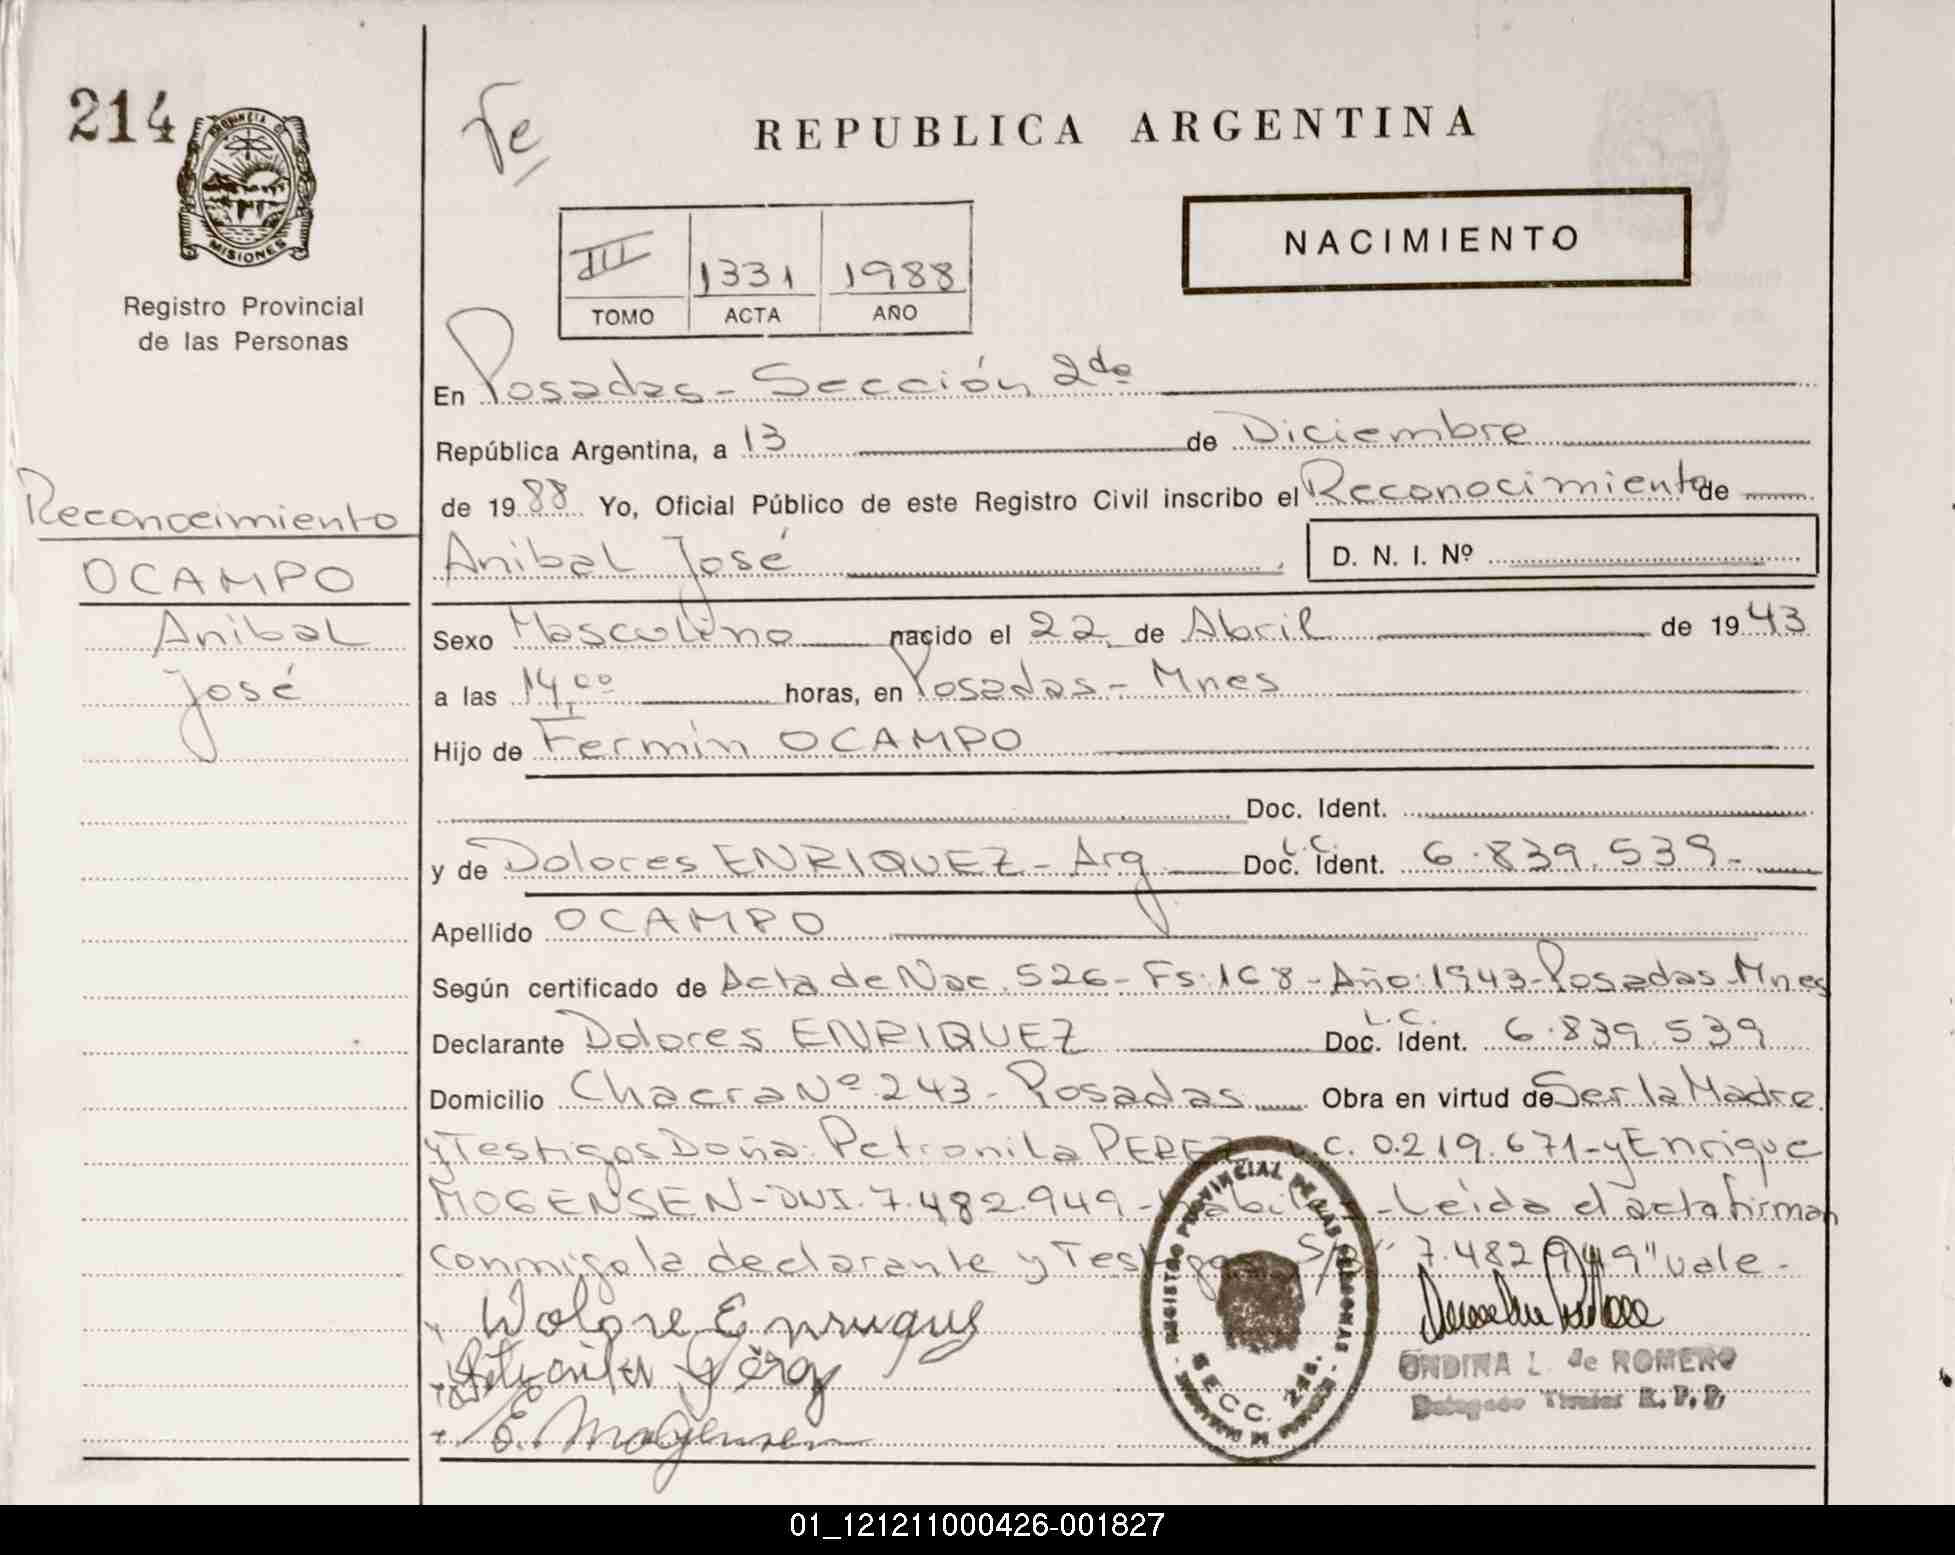 214
Fe
REPUBLICA ARGENTINA
PROVINCIA D
MISIONES
Registro Provincial
de las Personas
NACIMIENTO
III 1331 1988
TOMO ACTA AÑO
En Posadas - Sección 2da
República Argentina, a 13 de Diciembre
de 1988 Yo, Oficial Público de este Registro Civil inscribo el Reconocimiento de
Anibal José D. N. I. Nº
Reconocimiento
OCAMPO
Anibal
José
Sexo Masculino nacido el 22 de Abril de 1943
a las 14,00 horas, en Posadas - Mnes
Hijo de Fermín OCAMPO
Doc. Ident.
y de Dolores ENRIQUEZ - Arg Doc. Ident. L.C. 6.839.539.-
Apellido OCAMPO
Según certificado de Acta de Nac. 526 - Fs: 168 - Año: 1943 - Posadas - Mnes
Declarante Dolores ENRIQUEZ Doc. Ident. L.C. 6.839.539
Domicilio Chacra Nº 243 - Posadas Obra en virtud de Ser la Madre
y Testigos Doña: Petronila PEREZ L.C. 0.219.671 - y Enrique
MOGENSEN - DNI. 7.482.949 - - Leída el acta firman
conmigo la declarante y Testigos S/R " 7.482.949" vale -
Dolore Enrriques
Petronila Pérez
E. Mogensen
REGISTRO PROVINCIAL DE LAS PERSONAS
SECC. 2da.
ONDINA L. de ROMERO
Delegado Titular R.P.P.
01_121211000426-001827